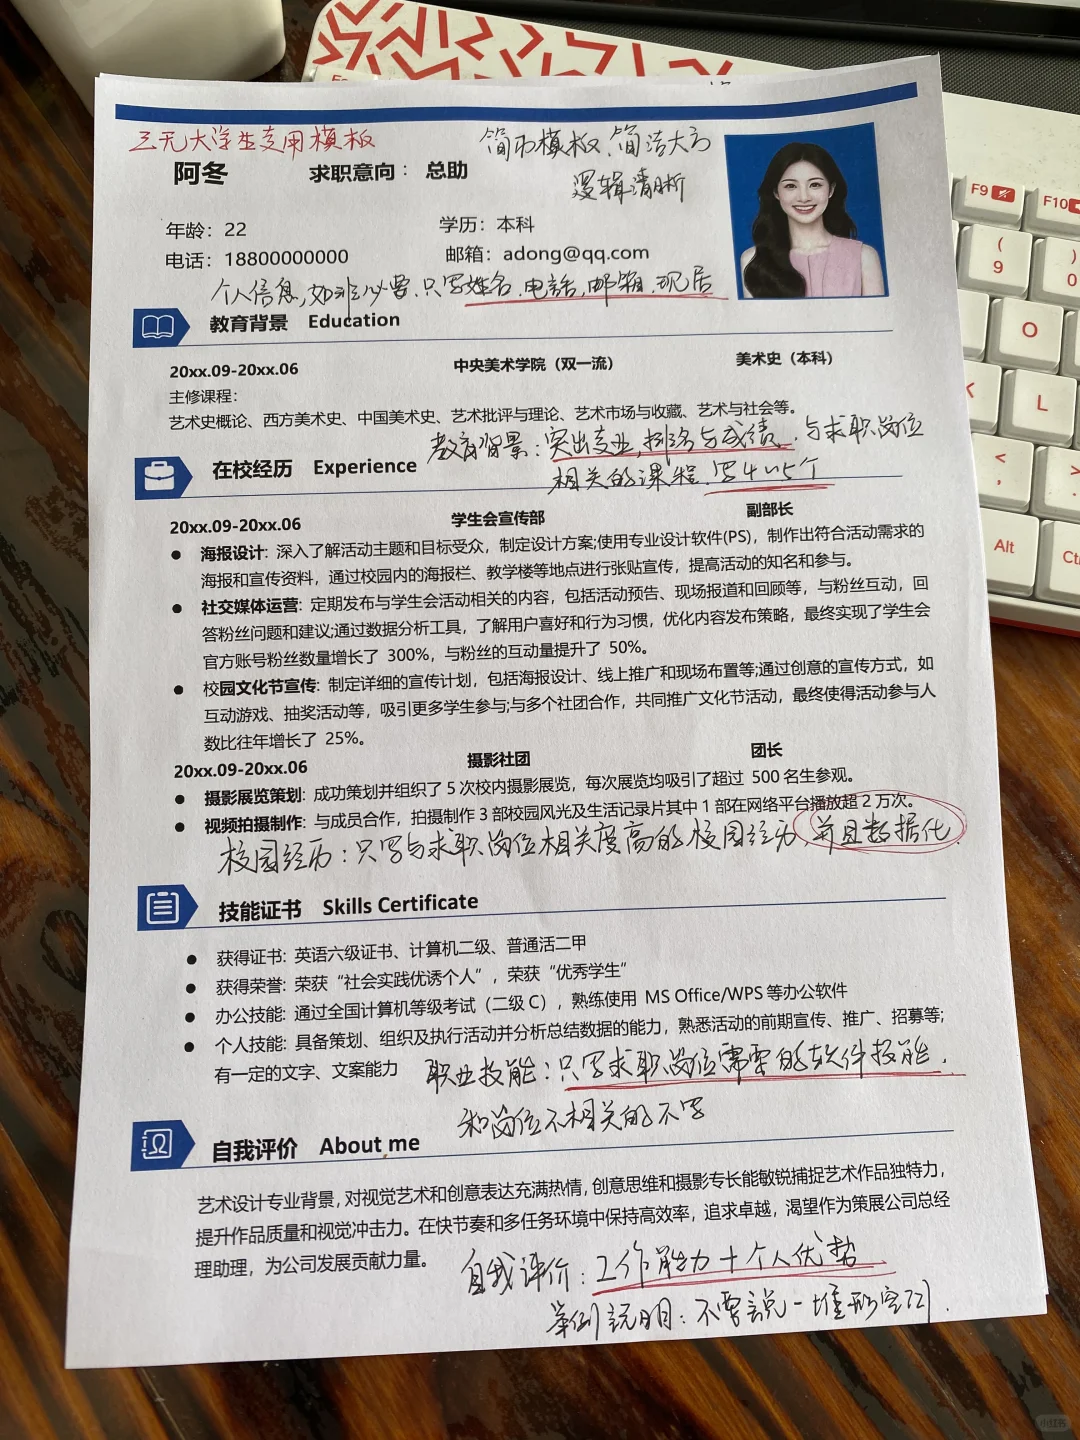 三无大学生专用模板
简历模板、简洁大方
逻辑清晰
阿冬 求职意向： 总助
年龄：22 学历：本科
电话：18800000000 邮箱：adong@qq.com
个人信息，如非必要，只写姓名、电話、邮箱、现居
教育背景 Education
20xx.09-20xx.06 中央美术学院（双一流） 美术史（本科）
主修课程：
艺术史概论、西方美术史、中国美术史、艺术批评与理论、艺术市场与收藏、艺术与社会等。
教育背景：突出专业，排名与成绩，与求职岗位
相关的课程，写4~5个
在校经历 Experience
20xx.09-20xx.06 学生会宣传部 副部长
● 海报设计: 深入了解活动主题和目标受众，制定设计方案;使用专业设计软件(PS)，制作出符合活动需求的
海报和宣传资料，通过校园内的海报栏、教学楼等地点进行张贴宣传，提高活动的知名和参与。
● 社交媒体运营: 定期发布与学生会活动相关的内容，包括活动预告、现场报道和回顾等，与粉丝互动，回
答粉丝问题和建议;通过数据分析工具，了解用户喜好和行为习惯，优化内容发布策略，最终实现了学生会
官方账号粉丝数量增长了 300%，与粉丝的互动量提升了 50%。
● 校园文化节宣传: 制定详细的宣传计划，包括海报设计、线上推广和现场布置等;通过创意的宣传方式，如
互动游戏、抽奖活动等，吸引更多学生参与;与多个社团合作，共同推广文化节活动，最终使得活动参与人
数比往年增长了 25%。
20xx.09-20xx.06 摄影社团 团长
● 摄影展览策划: 成功策划并组织了 5 次校内摄影展览，每次展览均吸引了超过 500 名生参观。
● 视频拍摄制作: 与成员合作，拍摄制作 3 部校园风光及生活记录片其中 1 部在网络平台播放超 2 万次。
校园经历：只写与求职岗位相关度高的校园经历，并且数据化
技能证书 Skills Certificate
● 获得证书: 英语六级证书、计算机二级、普通活二甲
● 获得荣誉: 荣获“社会实践优诱个人”，荣获“优秀学生”
● 办公技能: 通过全国计算机等级考试（二级 C），熟练使用 MS Office/WPS 等办公软件
● 个人技能: 具备策划、组织及执行活动并分析总结数据的能力，熟悉活动的前期宣传、推广、招募等;
有一定的文字、文案能力
职业技能：只写求职岗位需要的软件技能，
和岗位不相关的不写
自我评价 About me
艺术设计专业背景，对视觉艺术和创意表达充满热情，创意思维和摄影专长能敏锐捕捉艺术作品独特力，
提升作品质量和视觉冲击力。在快节奏和多任务环境中保持高效率，追求卓越，渴望作为策展公司总经
理助理，为公司发展贡献力量。
自我评价：工作能力＋个人优势
举例說明：不要說一堆形容词.
F9
F10
(
9
)
0
O
K
L
<
,
>
.
Alt
小红书